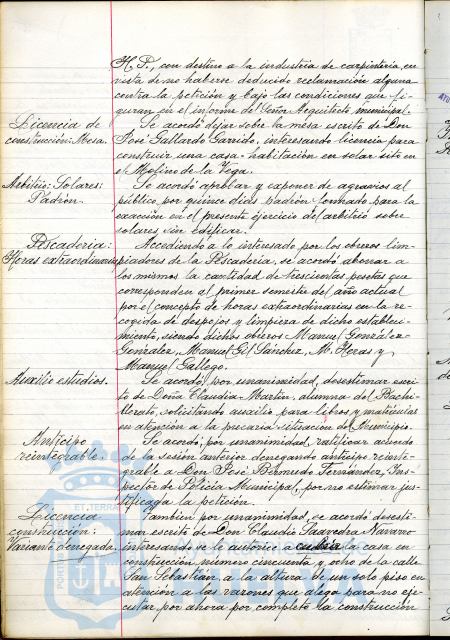 H.P., con destino a la industria de carpintería, en
vista de no haberse deducido reclamación alguna
contra la petición y bajo las condiciones que fi-
guran en el informe del Señor Arquitecto municipal.
Licencia de
construcción: Mesa.
Se acordó dejar sobre la mesa escrito de Don
José Gallardo Garrido, interesando licencia para
construir una casa-habitación en solar sito en
el Molino de la Vega.
Arbitrio: Solares:
Padrón.
Se acordó aprobar y exponer de agravios al
público por quince días padrón formado para la
exacción en el presente ejercicio del arbitrio sobre
solares sin edificar.
Pescadería:
Horas extraordinarias
Accediendo a lo interesado por los obreros lim-
piadores de la Pescadería, se acordó abonar a
los mismos la cantidad de trescientas pesetas que
corresponden al primer semestre del año actual
por el concepto de horas extraordinarias en la re-
cogida de despojos y limpieza de dicho estableci-
miento, siendo dichos obreros Manuel González
González, Manuel Gil Sánchez, M. Heras y
Manuel Gallego.
Auxilio estudios.
Se acordó, por unanimidad, desestimar escri-
to de Doña Claudia Martín, alumna del Bachi-
llerato, solicitando auxilio para libros y matrículas
en atención a la precaria situación del Municipio.
Anticipo
reintegrable.
Se acordó, por unanimidad, ratificar acuerdo
de la sesión anterior denegando anticipo reinte-
grable a Don José Bermudo Fernández, Ins-
pector de Policía Municipal, por no estimar jus-
tificada la petición.
Licencia
construcción:
Variante denegada.
También por unanimidad, se acordó desesti-
mar escrito de Don Claudio Saavedra Navarro
interesando se le autorice a cubrir la casa en
construcción número cincuenta y ocho de la calle
San Sebastián, a la altura de un solo piso en
atención a las razones que alega para no eje-
cutar por ahora por completo la construcción